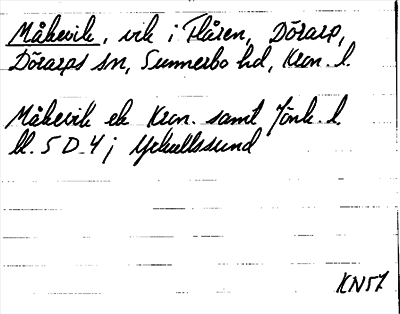 Måkevik, vik i Flåren, Dörarp,
Dörarps sn, Sunnerbo hd, Kron. l.
Måkevik ek Kron. samt Jönk. l.
bl. 5 D-4j Yxkullssund
KN57